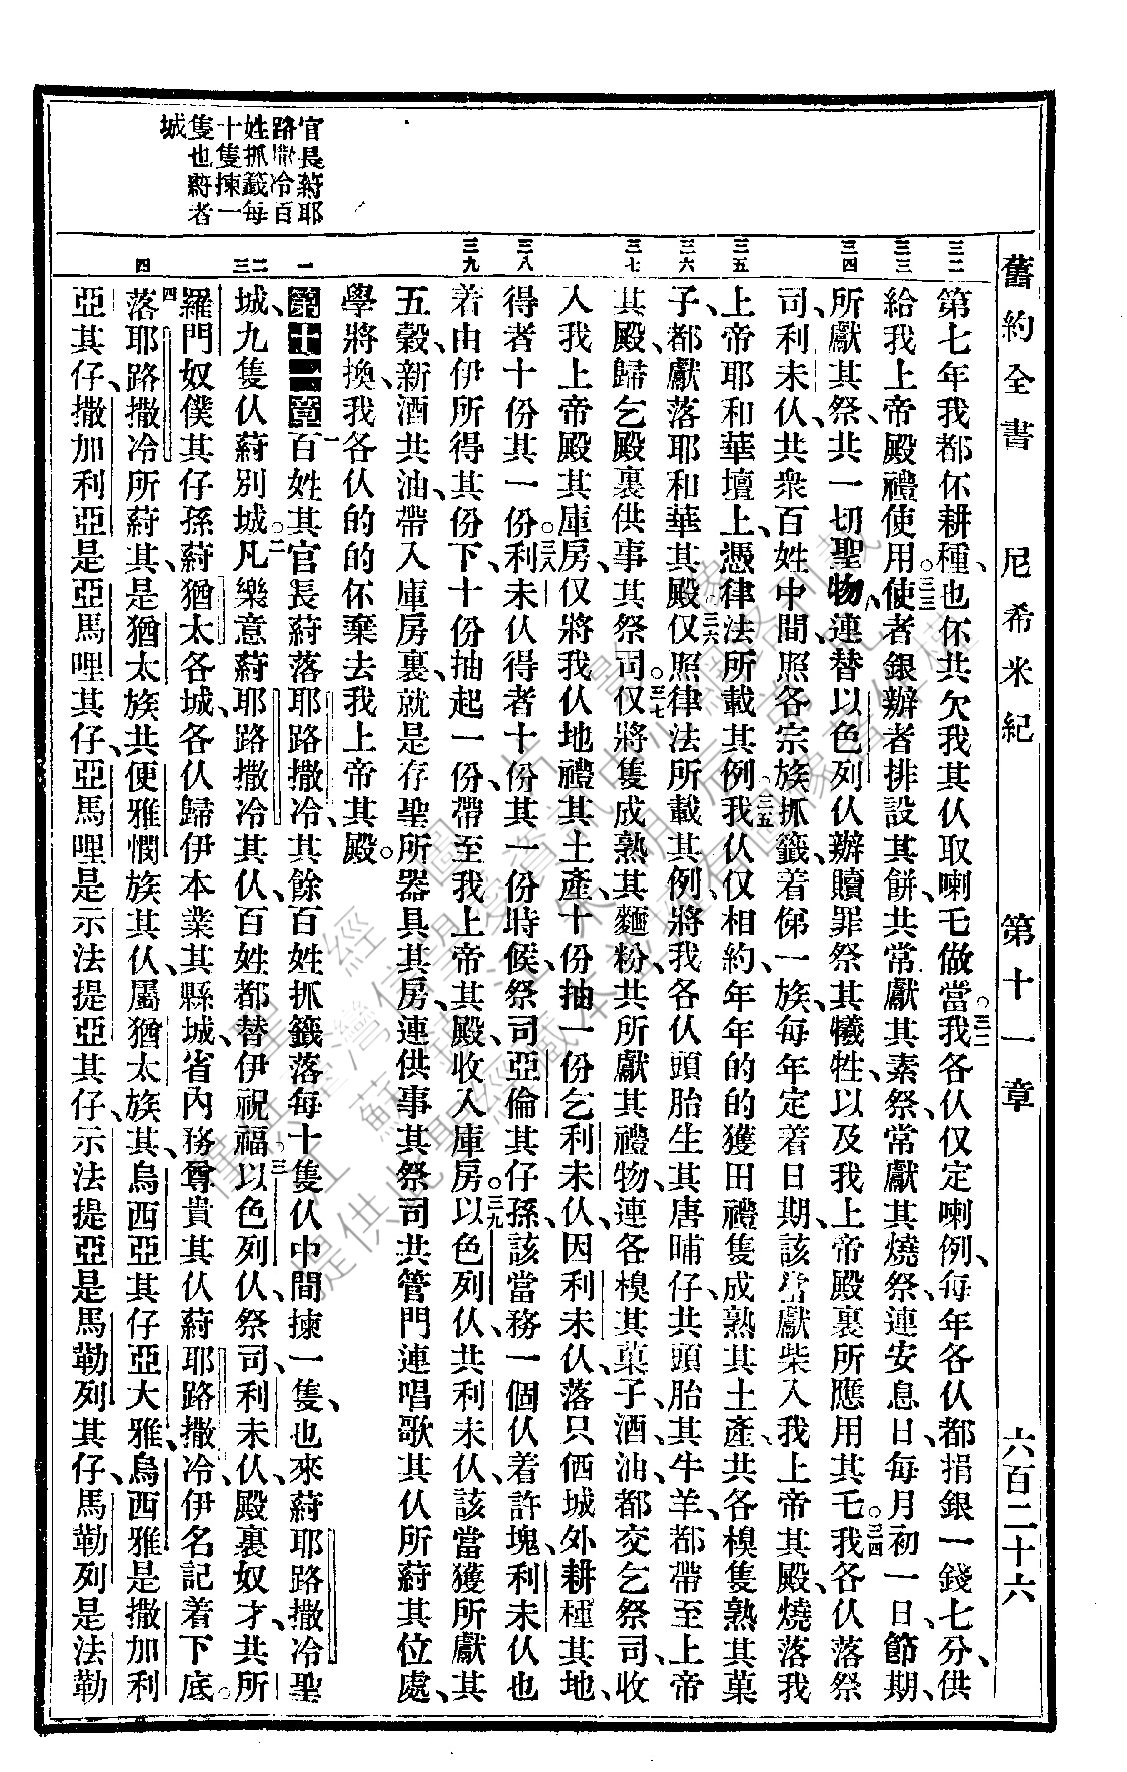 舊約全書 尼希米紀 第十一章 六百二十六
官長蒞耶
路撒冷百
姓抓籤每
十隻揀一
隻也蒞者
城
三二 三三 三四 三五 三六 三七 三八 三九 一 二 三 四
第七年我都伓耕種、也伓共欠我其仈取喇乇做當。三二我各仈仅定喇例、每年各仈都捐銀一錢七分、供
給我上帝殿禮使用。三三使者銀辦者排設其餅、共常獻其素祭、常獻其燒祭、連安息日、每月初一日、節期、
所獻其祭、共一切聖物、連替以色列仈辦贖罪祭其犧牲、以及我上帝殿裏所應用其乇。三四我各仈落祭
司利未仈、共衆百姓中間、照各宗族抓籤、着俤一族每年定着日期、該當獻柴入我上帝其殿、燒落我
上帝耶和華壇上、憑律法所載其例。三五我仈仅相約、年年的的獲田禮隻成熟其土產、共各模隻熟其菓
子、都獻落耶和華其殿。三六仅照律法所載其例、將我各仈頭胎生其唐晡仔、共頭胎其牛羊、都帶至上帝
其殿、歸乞殿裏供事其祭司。三七仅將隻成熟其麵粉、共所獻其禮物、連各模其菓子、酒、油、都交乞祭司、收
入我上帝殿其庫房、仅將我仈地禮其土產、十份抽一份乞利未仈、因利未仈落只値城外耕種其地、
得者十份其一份。三八利未仈得者十份其一份時候、祭司亞倫其仔孫、該當務一個仈着許塊、利未仈也
着由伊所得其份下、十份抽起一份、帶至我上帝其殿、收入庫房。三九以色列仈、共利未仈、該當獲所獻其
五穀、新酒、共油、帶入庫房裏、就是存聖所器具其房、連供事其祭司、共管門、連唱歌其仈所蒞其位處、
學將換、我各仈的的伓棄去我上帝其殿。
第十一章 一百姓其官長蒞落耶路撒冷、其餘百姓抓籤、落每十隻仈中間揀一隻、也來蒞耶路撒冷聖
城、九隻仈蒞別城。二凡樂意蒞耶路撒冷其仈、百姓都替伊祝福。三以色列仈、祭司、利未仈、殿裏奴才、共所
羅門奴僕其仔孫、蒞猶太各城、各仈歸伊本業其縣城、省內務尊貴其仈蒞耶路撒冷、伊名記着下底。
四落耶路撒冷所蒞其、是猶太族、共便雅憫族其仈、屬猶太族其、烏西亞其仔亞大雅、烏西雅是撒加利
亞其仔、撒加利亞是亞馬哩其仔、亞馬哩是示法提亞其仔、示法提亞是馬勒列其仔、馬勒列是法勒